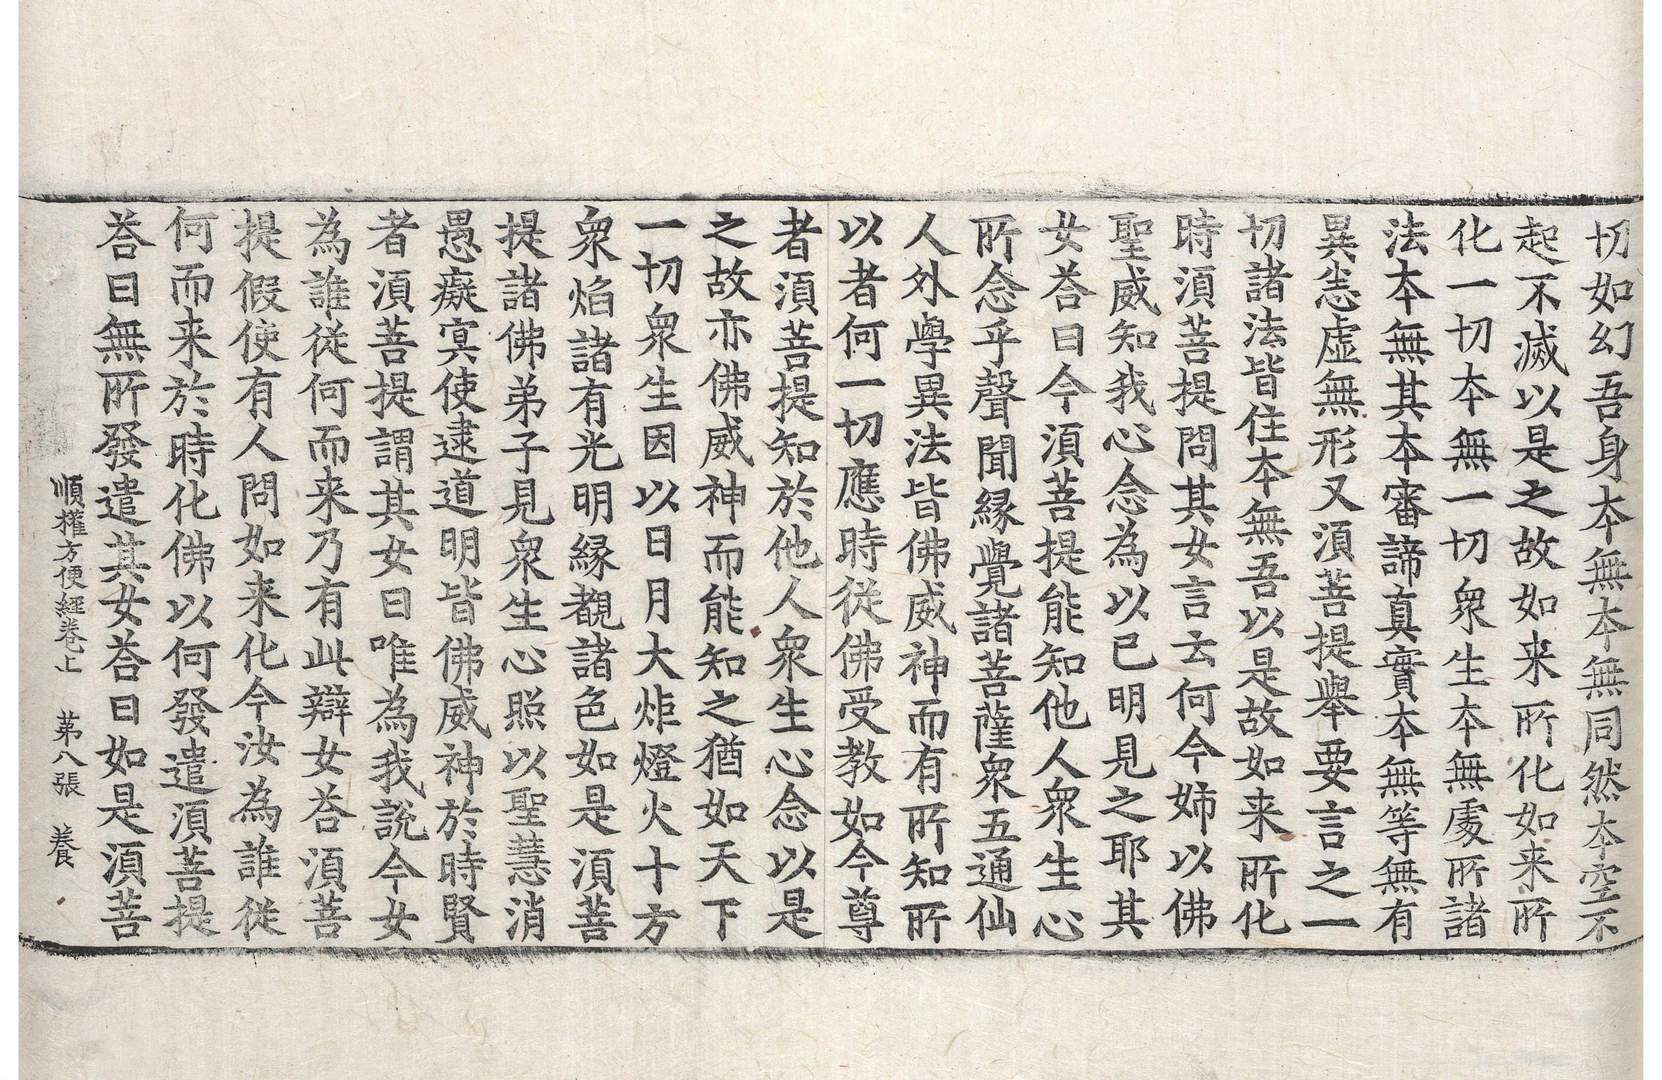 切如幻吾身本無本無同然本空不
起不滅以是之故如来所化如来所
化一切本無一切衆生本無處所諸
法本無其本審諦真實本無等無有
異恙虛無形又湏菩提舉要言之一
切諸法皆住本無吾以是故如来所化
時湏菩提問其女言云何今姉以佛
聖威知我心念為以已明見之耶其
女荅曰今湏菩提能知他人衆生心
所念乎聲聞縁覺諸菩薩衆五通仙
人外學異法皆佛威神而有所知所
以者何一切應時從佛受教如今尊
者湏菩提知於他人衆生心念以是
之故亦佛威神而能知之猶如天下
一切衆生因以日月大炬燈火十方
衆焰諸有光明縁覩諸色如是湏菩
提諸佛弟子見衆生心照以聖慧消
愚癡冥使逮道明皆佛威神於時賢
者湏菩提謂其女曰唯為我說今女
為誰從何而来乃有此辯女荅湏菩
提假使有人問如来化今汝為誰從
何而来於時化佛以何發遣湏菩提
荅曰無所發遣其女荅曰如是湏菩
順權方便經卷上　苐八張　養